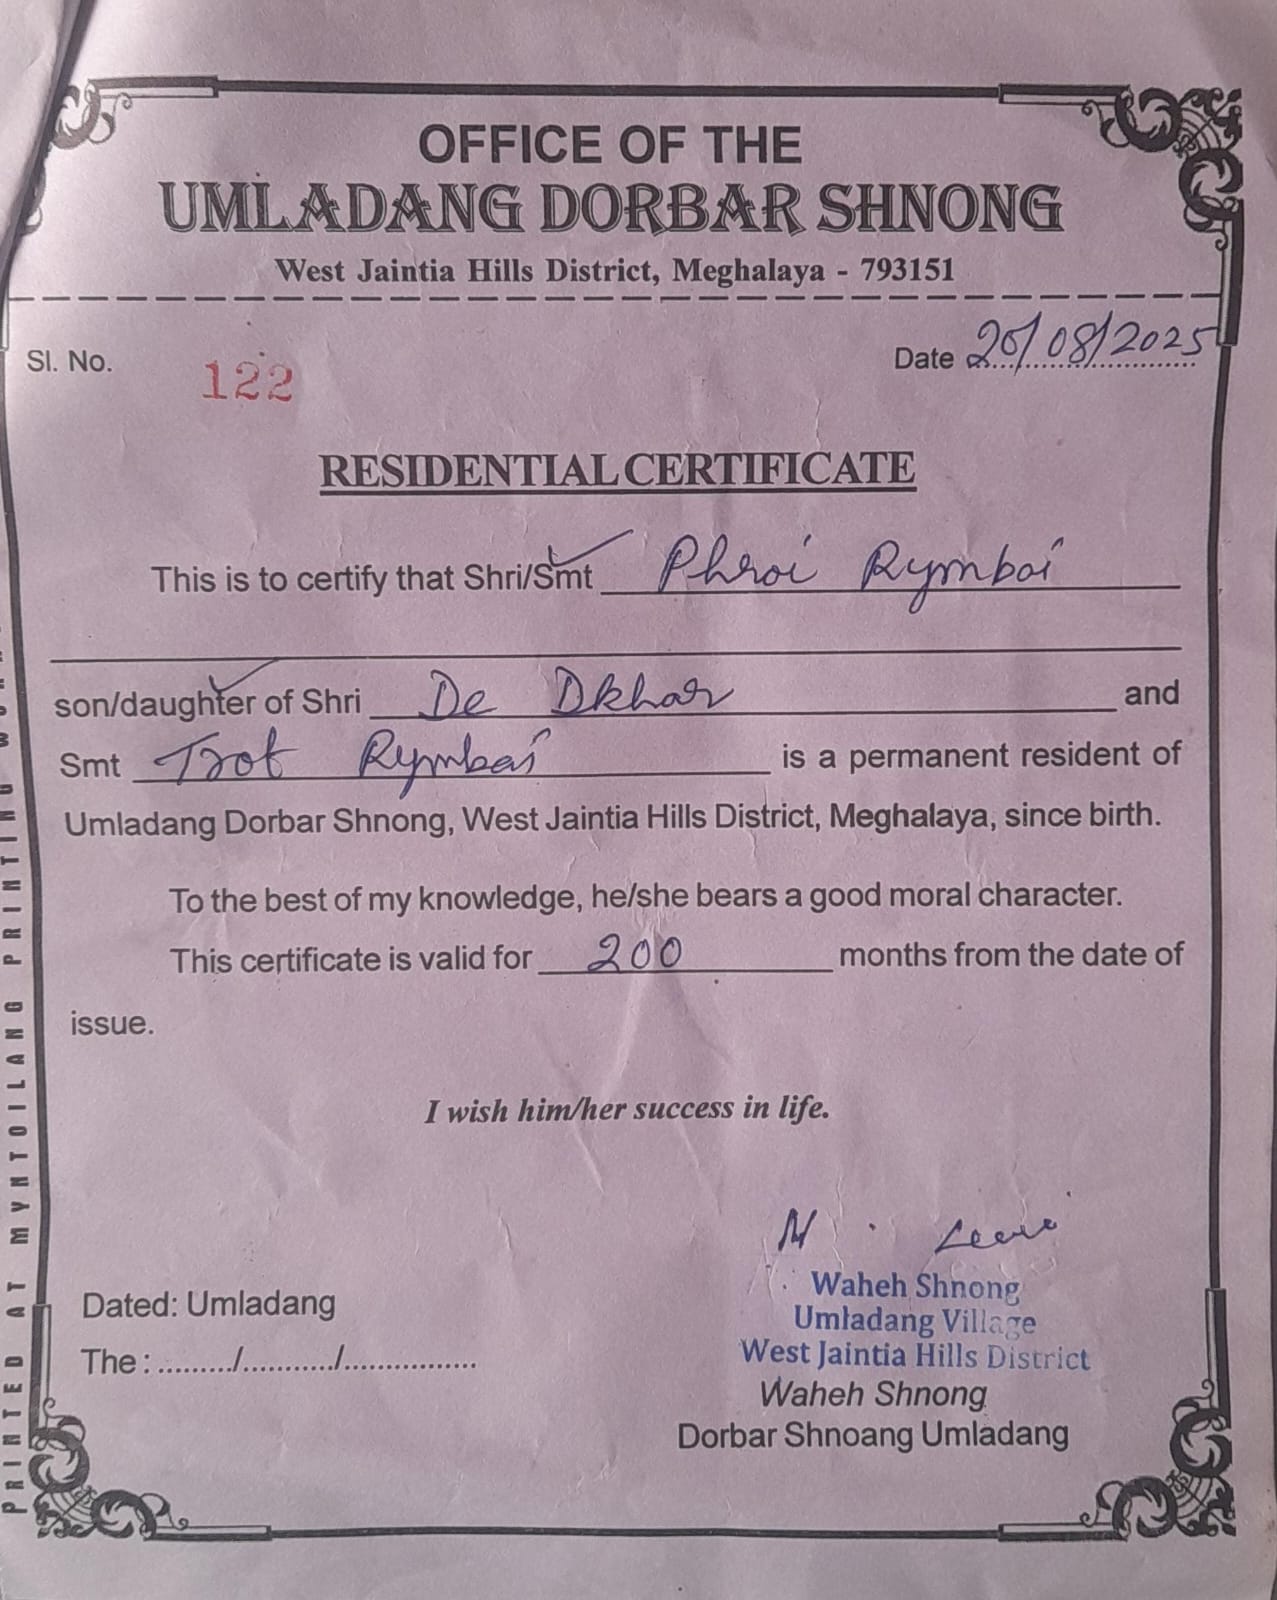 OFFICE OF THE
UMLADANG DORBAR SHNONG
West Jaintia Hills District, Meghalaya - 793151
Sl. No. 122 Date 20/08/2025
RESIDENTIAL CERTIFICATE
This is to certify that Shri/Smt Phroi Rymbai
son/daughter of Shri De Dkhar and
Smt Trot Rymbai is a permanent resident of
Umladang Dorbar Shnong, West Jaintia Hills District, Meghalaya, since birth.
To the best of my knowledge, he/she bears a good moral character.
This certificate is valid for 200 months from the date of
issue.
I wish him/her success in life.
Waheh Shnong
Umladang Village
West Jaintia Hills District
Dated: Umladang
The : ........./.........../................
Waheh Shnong
Dorbar Shnoang Umladang
PRINTED AT MYNTOILANG PRINTING